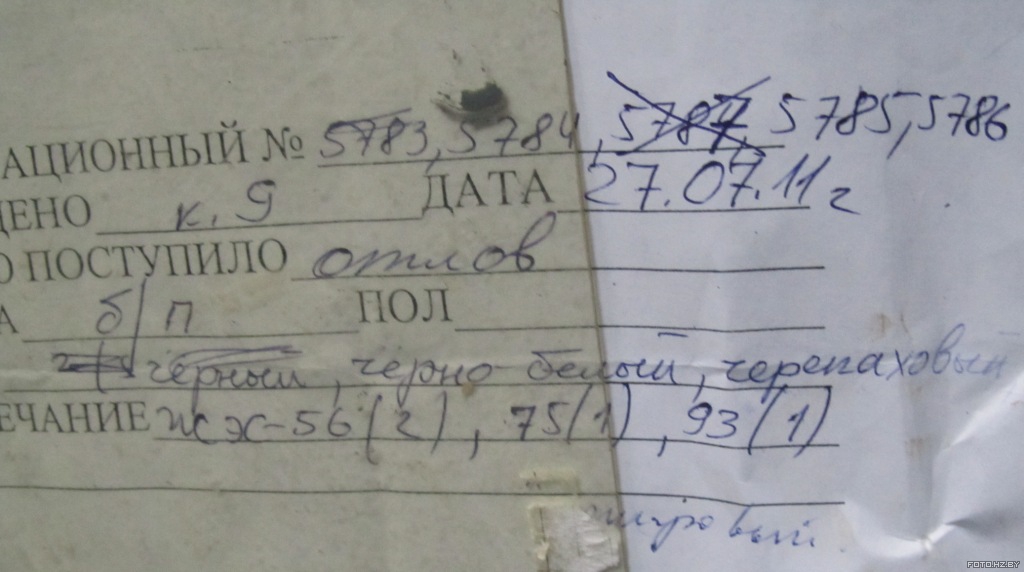 АЦИОННЫЙ № 5783, 5784, 5787, 5785, 5786
ЦЕНО к. 9 ДАТА 27.07.11 г
О ПОСТУПИЛО отлов
А б/п ПОЛ
черный, черно-белый, черепаховый
ЕЧАНИЕ ЖЭХ-56(2), 75(1), 93(1)
FOTO.HZ.BY